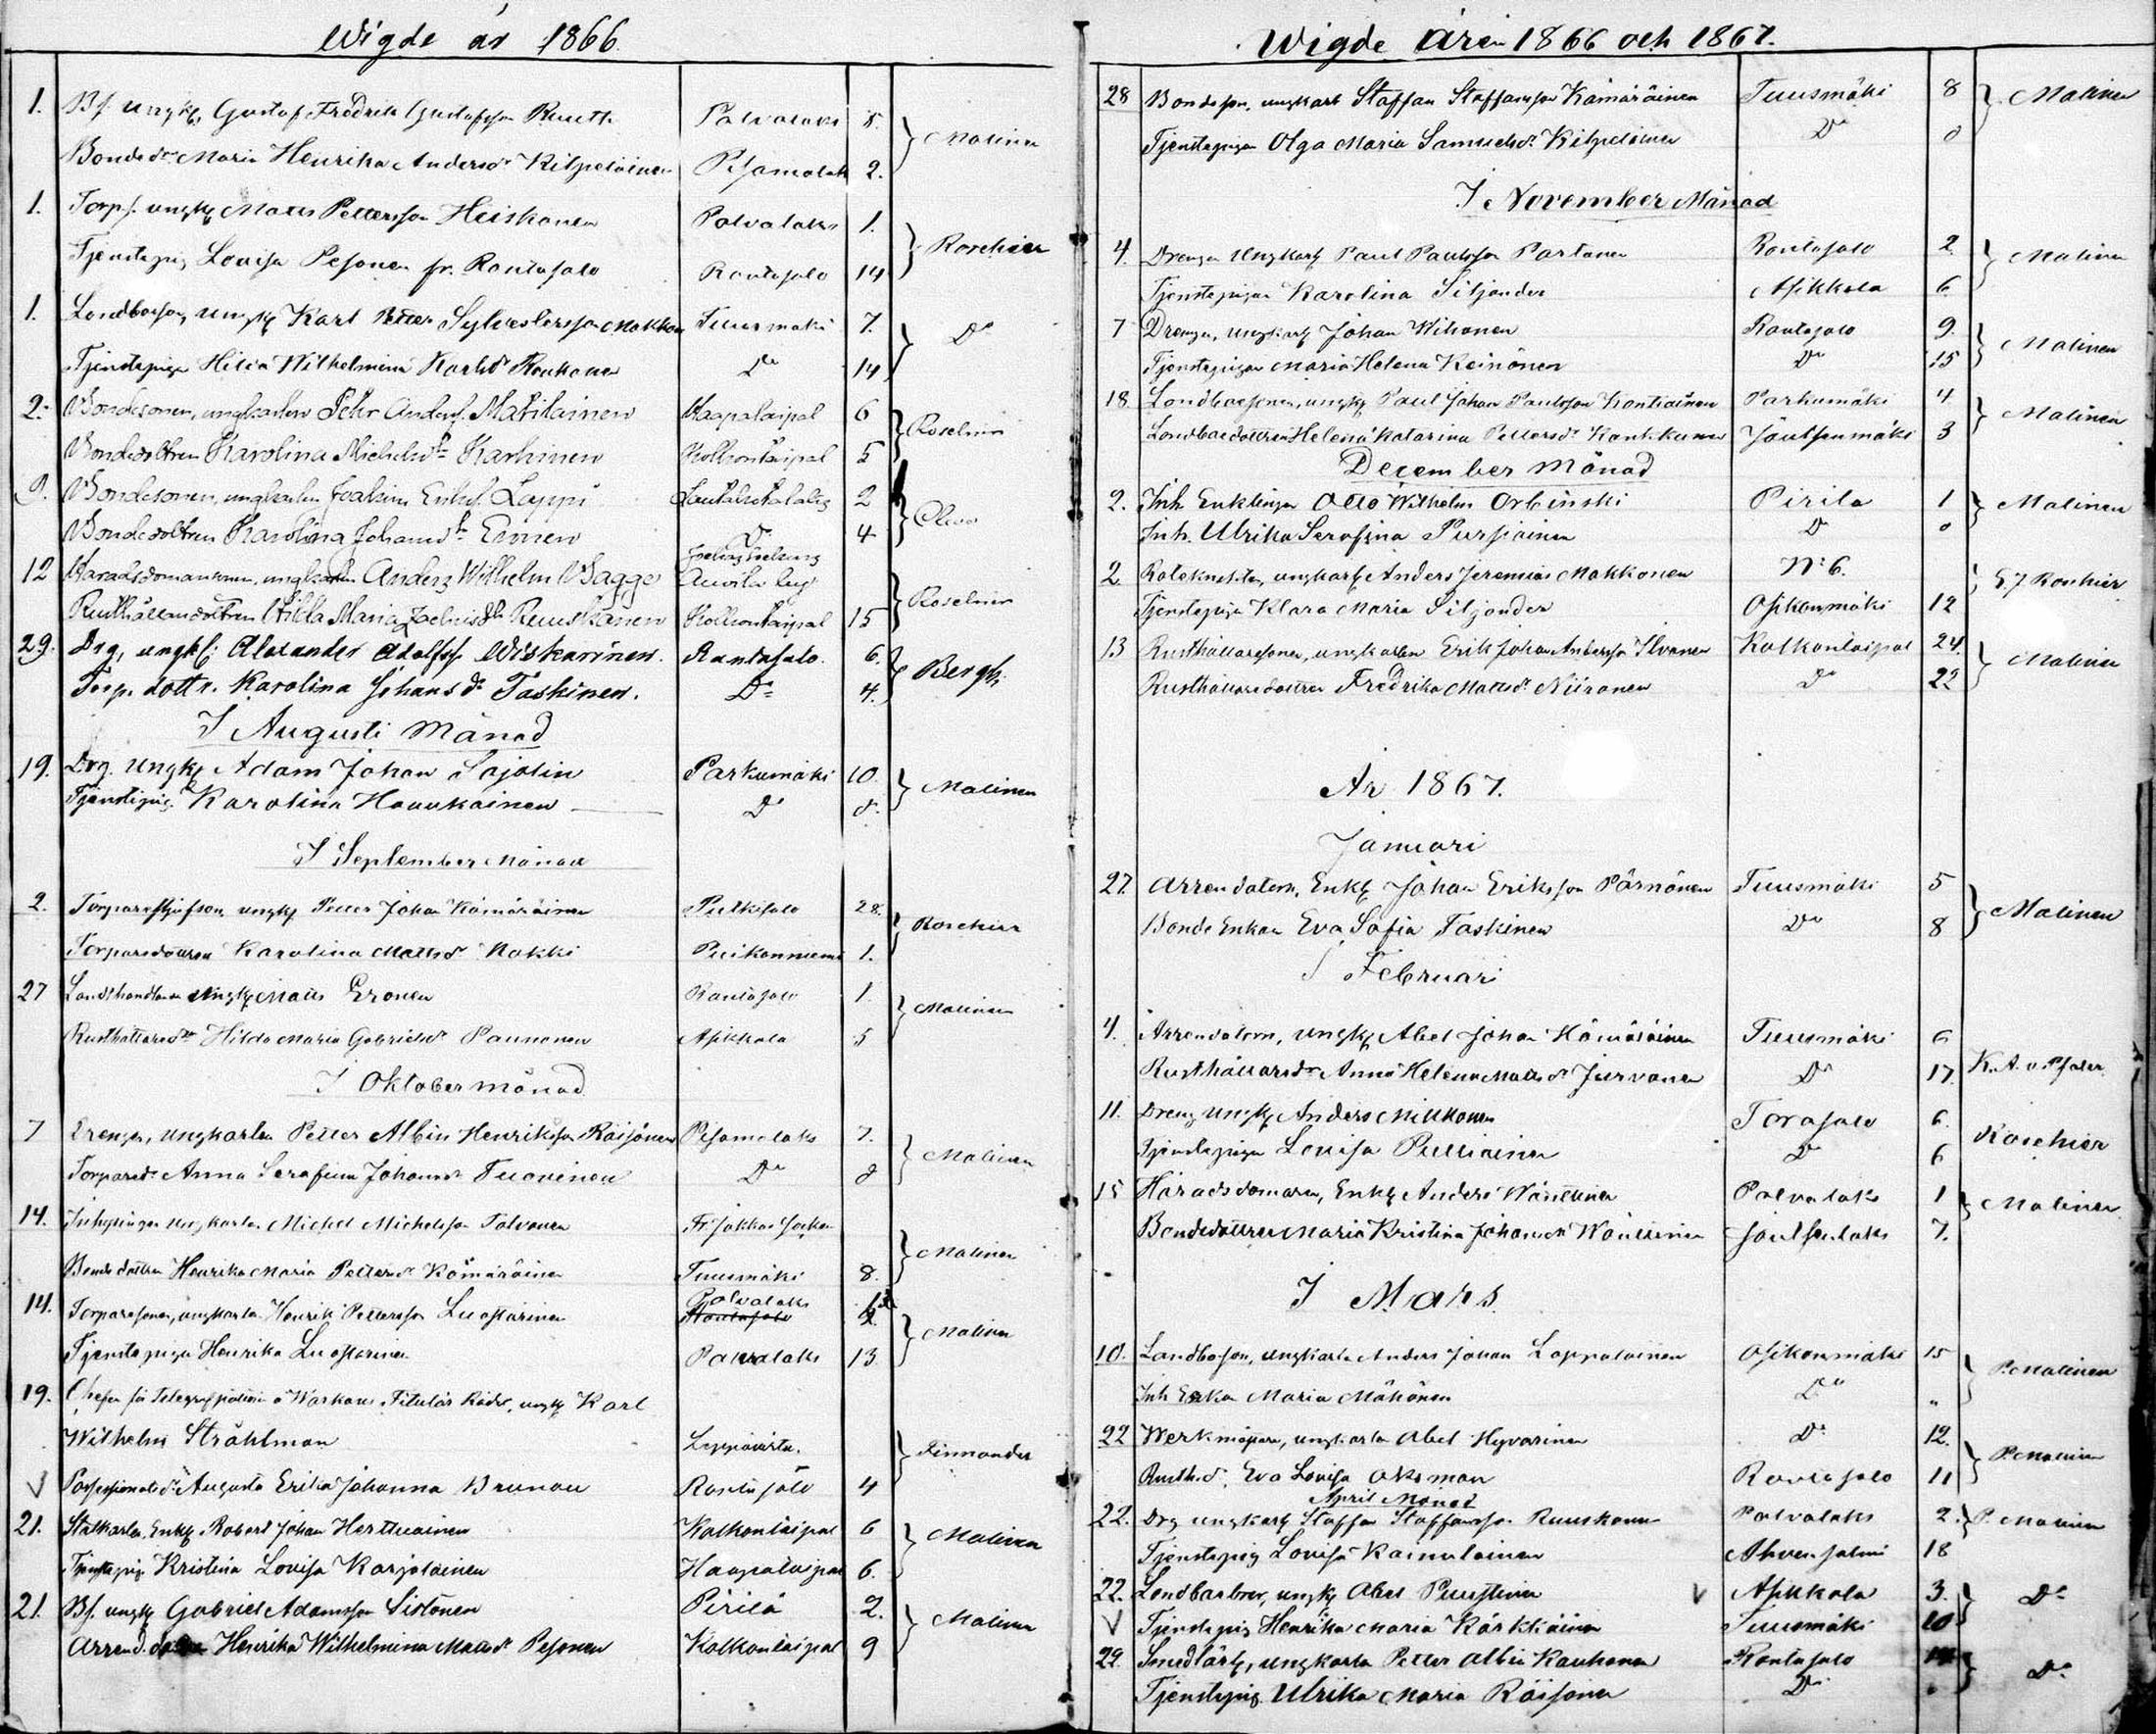 Wigde år 1866.
1. Bs. ungk. Gustaf Fredrik Gustafsson Ruuth Palvalaks 8. } Malinen
Bondedr Maria Henrika Andersdr Kilpeläinen Pisamalaks 2.
1. Torps. ungk. Matts Pettersson Heiskanen Palvalaks 1. } Roschier
Tjenstepig. Lovisa Pesonen fr. Rantasalo Rantasalo 14
1. Landboeson, ungk. Karl Petter Sylvestersson Makkon Tuusmäki 7. } Do
Tjenstepiga Hilda Wilhelmina Karlsdr Do 14
2. Bondesonen, ungkarlen Pehr Andersf. Matilainen Haapataipal 6 } Roschier
Bondedottren Karolina Michelsdr Karhinen Kolkontaipal 5
9. Bondesonen, ungkarlen Joakim Eriksf. Lappi 2 }
Bondedottren Karolina Johansdr Eronen Do 4
12 Häradsdomaresonen, ungkarlen Anders Wilhelm Bagge } Roschier
Rusthållaredottren Hilda Maria Ruuskanen Kolkontaipal 15
29. Drg, ungk. Alexander Adolfsf. Wiskarinen. Rantasalo. 6. } Bergh
Torp. dottr. Karolina Johansdr Taskinen. Do 4.
I Augusti Månad
19. Drg. Ungk. Adam Johan Sajolin Parkumäki 10. } Malinen
Tjenstepig. Karolina Haukkainen Do 8.
I September Månad
2. Torparestjufson, ungk. Petter Johan Kämäräinen Pulkisalo 28. } Roschier
Torparedottren Karolina Mattsdr Nokki Puikonniemi 1.
27 Landthandlaren Ungk. Matts Eronen Rantasalo 1. } Malinen
Rusthållaredr Hilda Maria Gabrielsdr Paunonen Asikkala 5
I Oktober månad
7 Drengen, Ungkarlen Petter Albin Henriksson Räisänen Pisamalaks 7. } Malinen
Torparedr Anna Serafina Johansdr Tuovinen Do 8
14. Inhysingen ungkarlen Michel Michelsson Tolvanen Fr. Jokkas Socken } Malinen
Bondedottren Henrika Maria Pettersdr Kämäräinen Tuusmäki 8.
14. Torparesonen, ungkarlen Henrik Pettersson Luostarinen Palvalaks Rantasalo } Malinen
Tjenstepigan Henrika Luostarinen Palvalaks 13
19. Chefen för Telegrafstation i Warkaus Titulär Rådet, ungk. Karl
Wilhelm Stråhlman Leppävirta. } Finnander
V Possessionatsdr Augusta Erika Johanna Brunou Rantasalo 4
21. Stalkarlen, Enkl. Robert Johan Herttuainen Kolkontaipal 6 } Malinen
Tjenstepig. Kristina Lovisa Karjalainen Haapataipal 6.
21. Bs. ungk. Gabriel Adamsson Sistonen Pirilä 2. } Malinen
Arrend. Henrika Wilhelmina Mattsdr Pesonen Kolkontaipal 9
Wigde åren 1866 och 1867.
28 Bondeson, ungkarl Staffan Staffansson Kämäräinen Tuusmäki 8 } Malinen
Tjenstepigan Olga Maria Samuelsdr Kilpeläinen Do 0
I November Månad
4. Drengen Ungkarl. Paul Paulsson Partanen Rantasalo 2. } Malinen
Tjenstepigan Karolina Siljander Asikkala 6
7 Drengen, ungkarl. Johan Wihonen Rantasalo 9. } Malinen
Tjenstepigan Maria Helena Keinänen Do 15
18. Landboesonen, ungk. Paul Johan Paulsson Kontiainen Parkumäki 4 } Malinen
Landboedottren Helena Katarina Pettersdr Kontkunen Joutsenmäki 3
December Månad
2. Inh. Enklingen Otto Wilhelm Orbinski Pirilä 1 } Malinen
Inh. Ulrika Serafina Pursiainen Do 0
2. Roteknekten, ungkarl. Anders Jeremias Makkonen No 6. } Roschier
Tjenstepiga Klara Maria Siljander Osikonmäki 12
13 Rusthållaresonen, ungkarlen Erik Johan Andersson Ilvonen Kolkontaipal 24. } Malinen
Rusthållaredottren Fredrika Mattsdr Niiranen Do 22
År 1867.
Januari
27. Arrendatorn, Enkl. Johan Eriksson Pärnänen Tuusmäki 5 } Malinen
Bonde Enkan Eva Sofia Taskinen Do 8
I Februari
4. Arrendatorn, ungk. Abel Johan Hämäläinen Tuusmäki 6
Rusthållaredr Anna Helena Mattsdr Jurvanen Do 17.
11. Dreng ungk. Anders Miukkonen Torasalo 6. Roschier
Tjenstepigan Lovisa Pulliainen Do 6
15 Häradsdomaren, Enkl. Anders Wänttinen Palvalaks 1 } Malinen
Bondedottren Maria Kristina Johansdr Wänttinen Joutsenlaks 7.
I Mars
10. Landboson, ungkarlen Anders Johan Lappalainen Osikonmäki 15 } P. Malinen
Inh Enkan Maria Mähönen Do "
22 Werkmästaren, ungkarlen Abel Hyvärinen Do 12. } P. Malinen
Rusth.dr Eva Lovisa Oksman Rantasalo 11
April Månad
22. Drg ungkarl. Staffan Staffansson Ruuskanen Palvalaks 2. } P. Malinen
Tjenstepig Lovisa Kainulainen Ahvensalmi 18
22. Landboebror, ungk. Abel Puustinen V Asikkala 3. } Do
V Tjenstepig Henrika Maria Kärkkäinen Tuusmäki 10
22 Smedlärl., ungkarlen Petter Albin Kauhanen Rantasalo } Do
Tjenstepig Ulrika Maria Räisänen Do